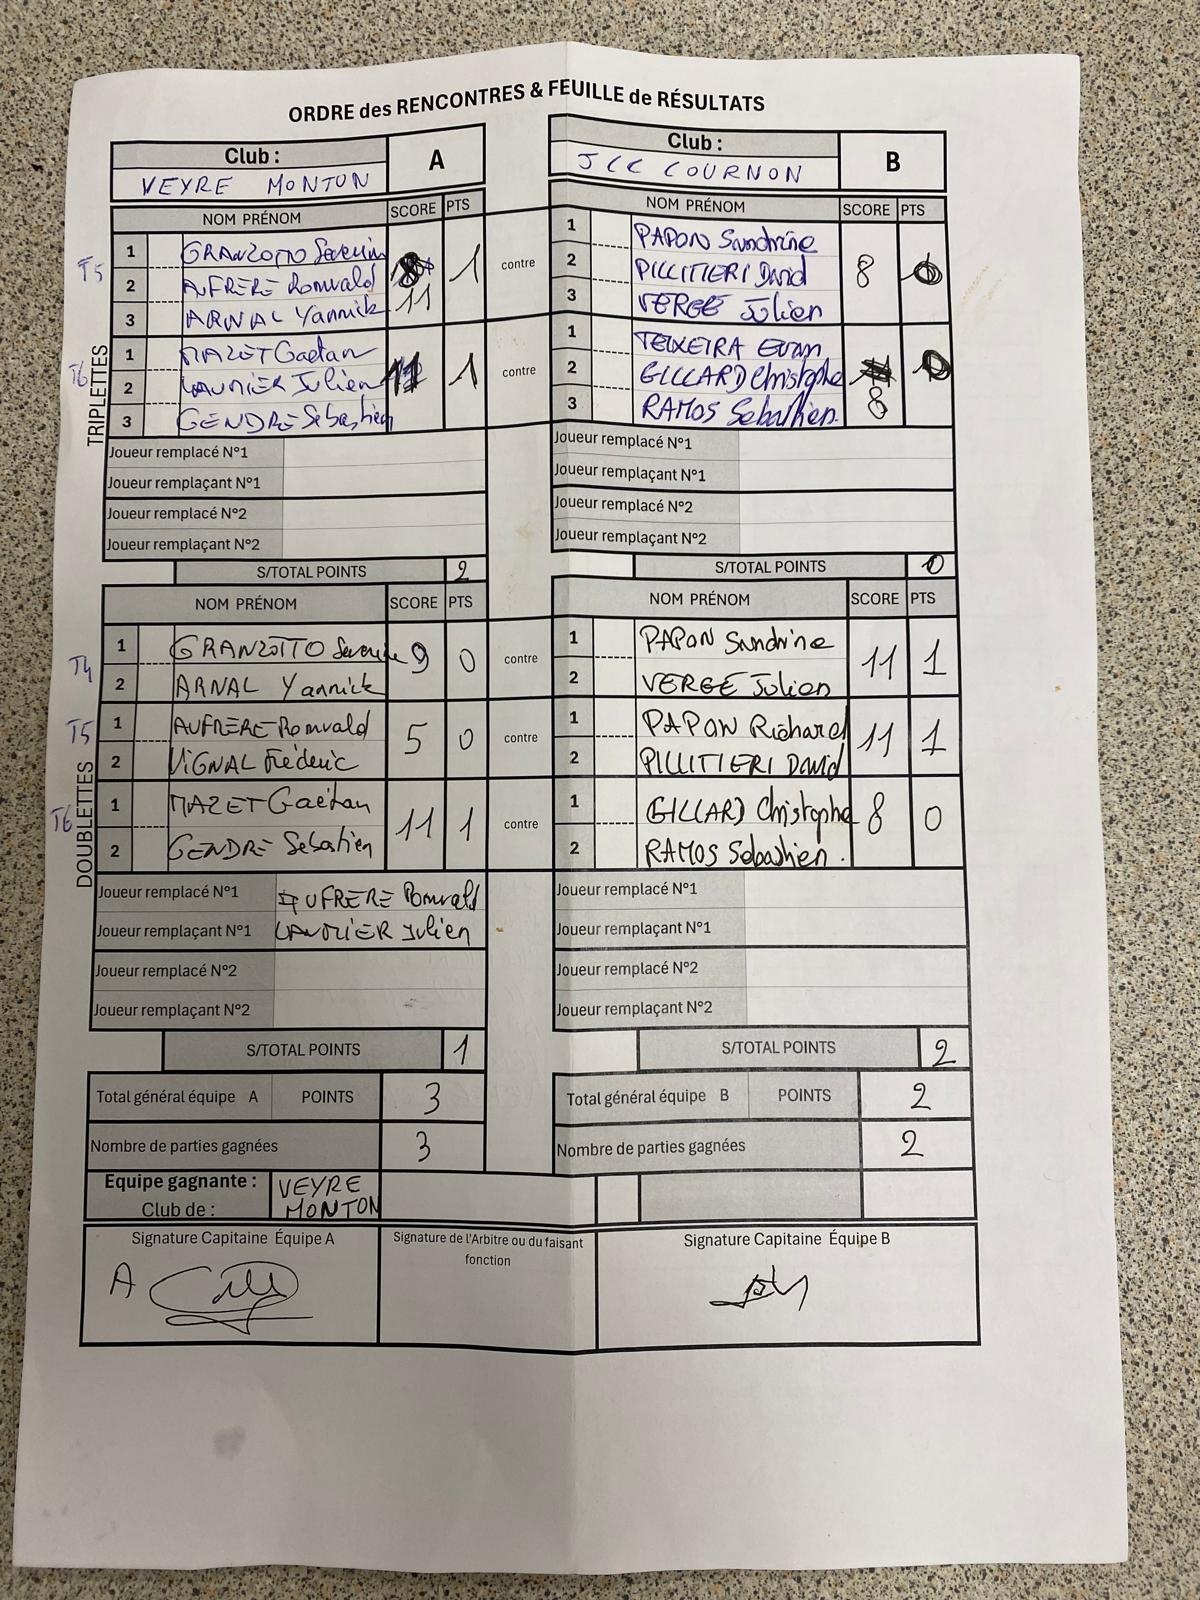 ORDRE des RENCONTRES & FEUILLE de RÉSULTATS
Club : A
VEYRE MONTON
Club : B
JCC COURNON
NOM PRÉNOM SCORE PTS
NOM PRÉNOM SCORE PTS
TRIPLETTES
T5
1 GRANZOTTO Severine
2 AUFRERE Romuald
3 ARNAL Yannick
11 1
contre
1 PAPON Sandrine
2 PILLITIERI David
3 VERGE Julien
8 0
T6
1 MAZET Gaëtan
2 LAUNIER Julien
3 GENDRE Sébastien
11 1
contre
1 TEIXEIRA Evan
2 GILLARD Christophe
3 RAMOS Sébastien.
8 0
Joueur remplacé N°1
Joueur remplaçant N°1
Joueur remplacé N°2
Joueur remplaçant N°2
Joueur remplacé N°1
Joueur remplaçant N°1
Joueur remplacé N°2
Joueur remplaçant N°2
S/TOTAL POINTS 2
S/TOTAL POINTS 0
NOM PRÉNOM SCORE PTS
NOM PRÉNOM SCORE PTS
DOUBLETTES
T4
1 GRANZOTTO Severine
2 ARNAL Yannick
9 0
contre
1 PAPON Sandrine
2 VERGE Julien
11 1
T5
1 AUFRERE Romuald
2 VIGNAL Fréderic
5 0
contre
1 PAPON Richard
2 PILLITIERI David
11 1
T6
1 MAZET Gaëtan
2 GENDRE Sébastien
11 1
contre
1 GILLARD Christophe
2 RAMOS Sébastien.
8 0
Joueur remplacé N°1 AUFRERE Romuald
Joueur remplaçant N°1 LAUNIER Julien
Joueur remplacé N°2
Joueur remplaçant N°2
Joueur remplacé N°1
Joueur remplaçant N°1
Joueur remplacé N°2
Joueur remplaçant N°2
S/TOTAL POINTS 1
S/TOTAL POINTS 2
Total général équipe A POINTS 3
Total général équipe B POINTS 2
Nombre de parties gagnées 3
Nombre de parties gagnées 2
Equipe gagnante :
Club de :
VEYRE
MONTON
Signature Capitaine Équipe A
A
Signature de l'Arbitre ou du faisant
fonction
Signature Capitaine Équipe B